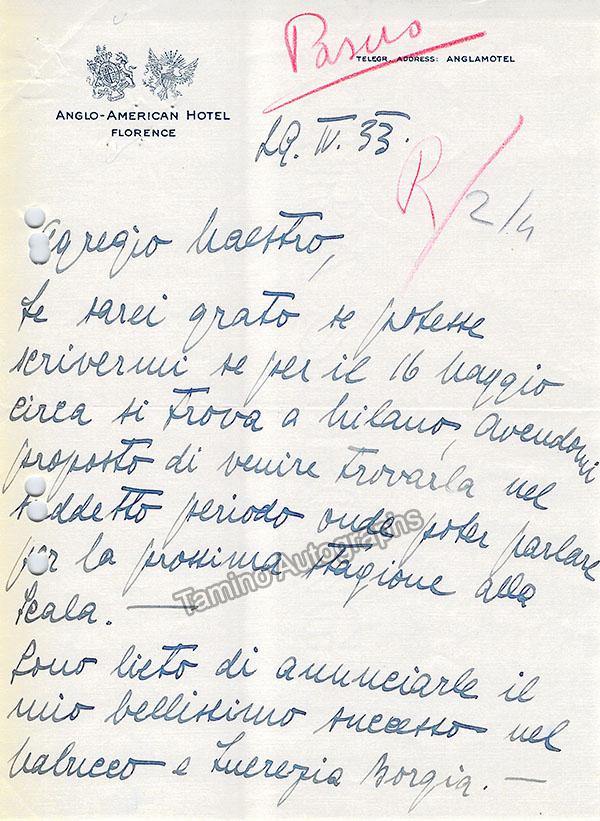 Pasero
TELEGR. ADDRESS: ANGLAMOTEL
ANGLO-AMERICAN HOTEL
FLORENCE
29. IV. 33.
R/ 2/4
Egregio Maestro,
Le sarei grato se potesse
scrivermi se per il 16 Maggio
circa si trova a Milano, avendomi
proposto di venire trovarla nel
suddetto periodo onde poter parlare
per la prossima stagione alla
Scala. —
Sono lieto di annunciarle il
mio bellissimo successo nel
Nabucco e Lucrezia Borgia. —
Tamino Autographs